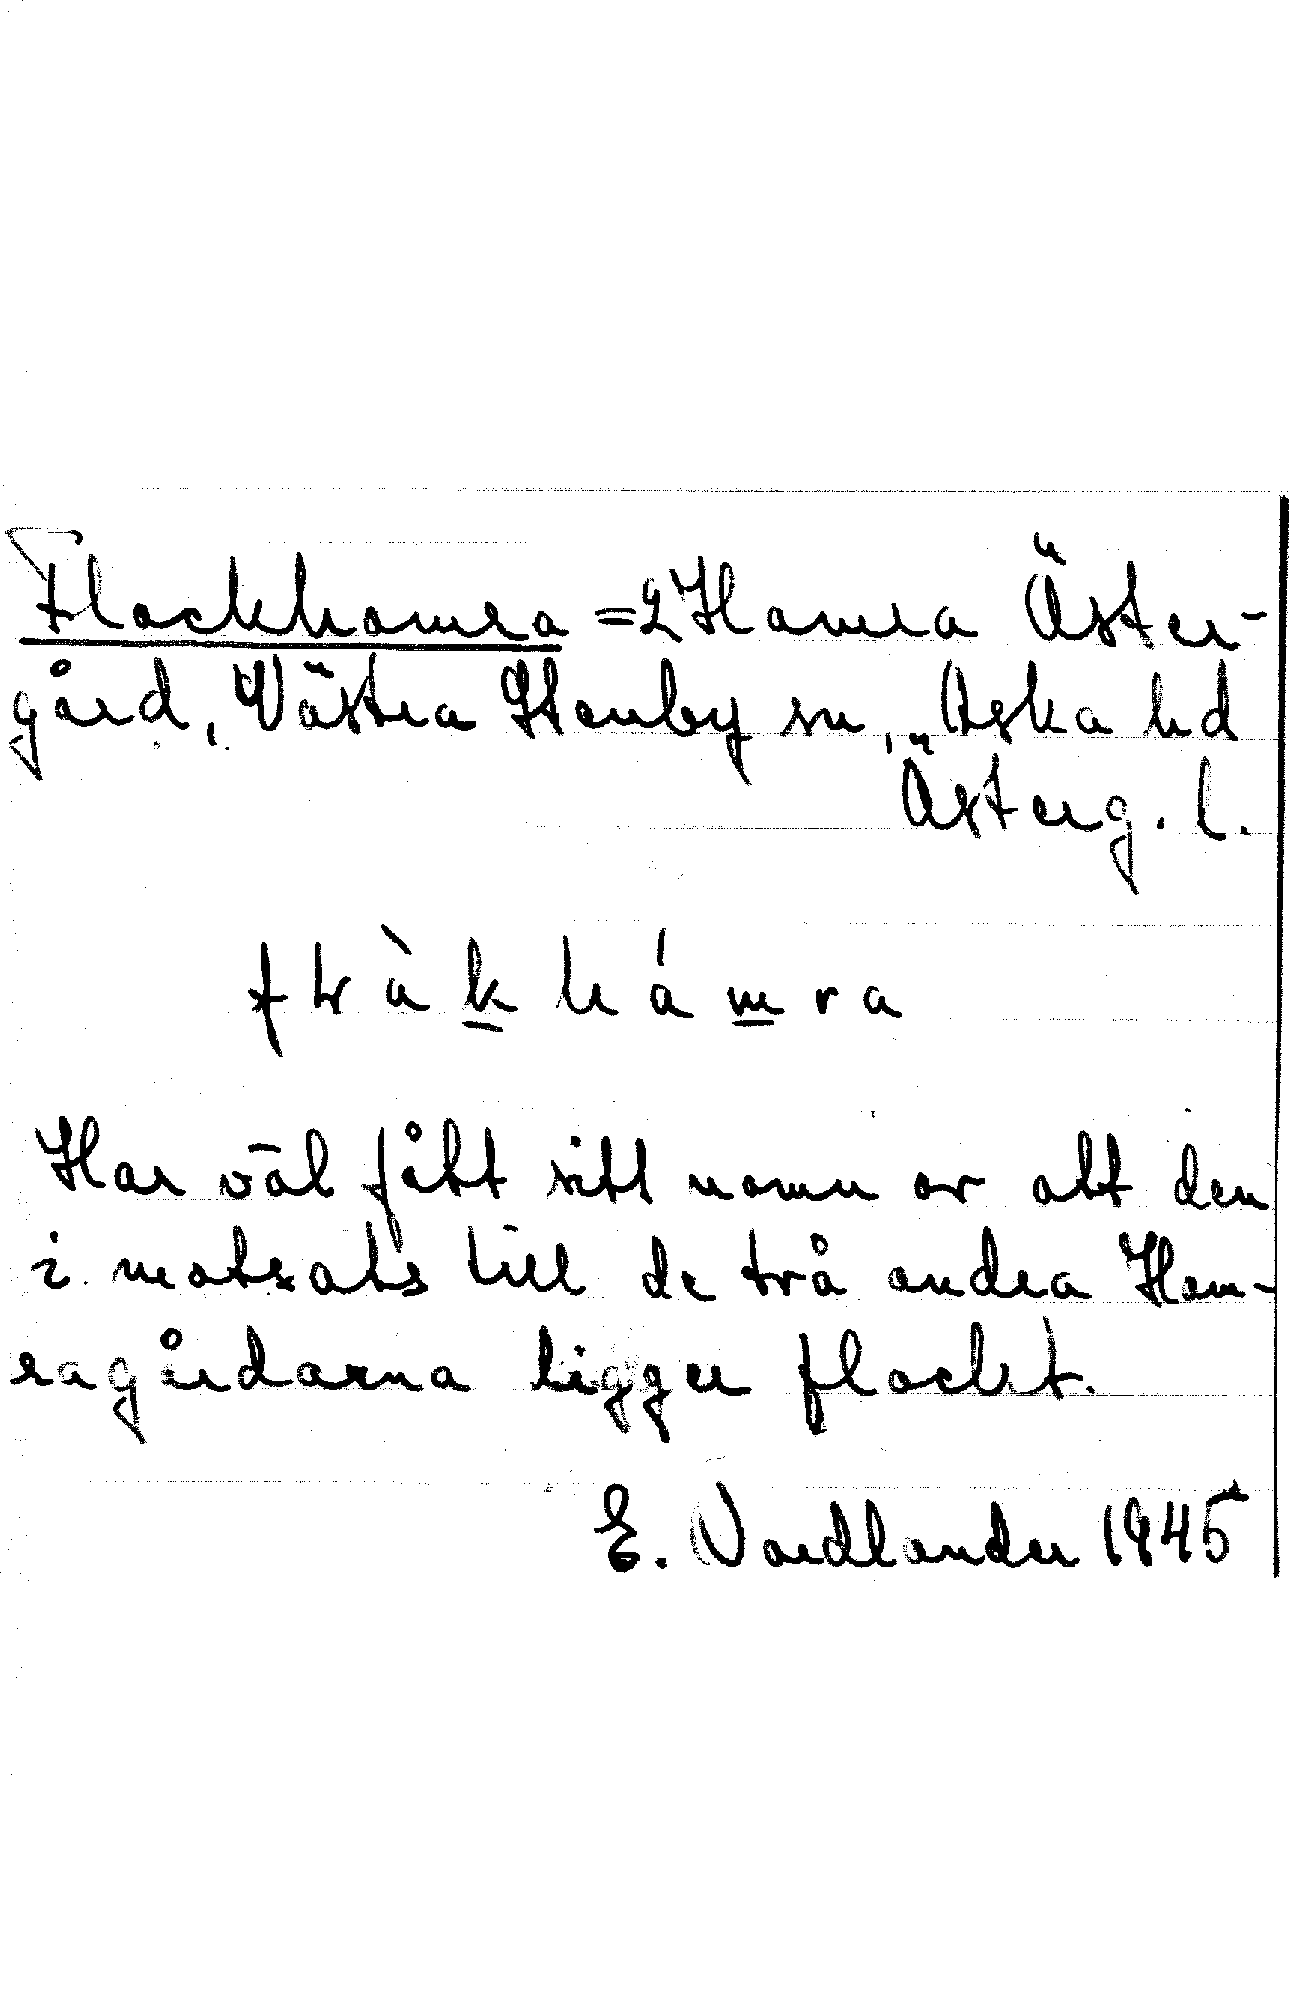 Flackhamra = 2 Hamra Öster-
gård, Västra Stenby sn, Aska hd
Österg. l.
flàkhámra
Har väl fått sitt namn av att den
i motsats till de två andra Ham-
ragårdarna ligger flackt.
E. Nordlander 1945